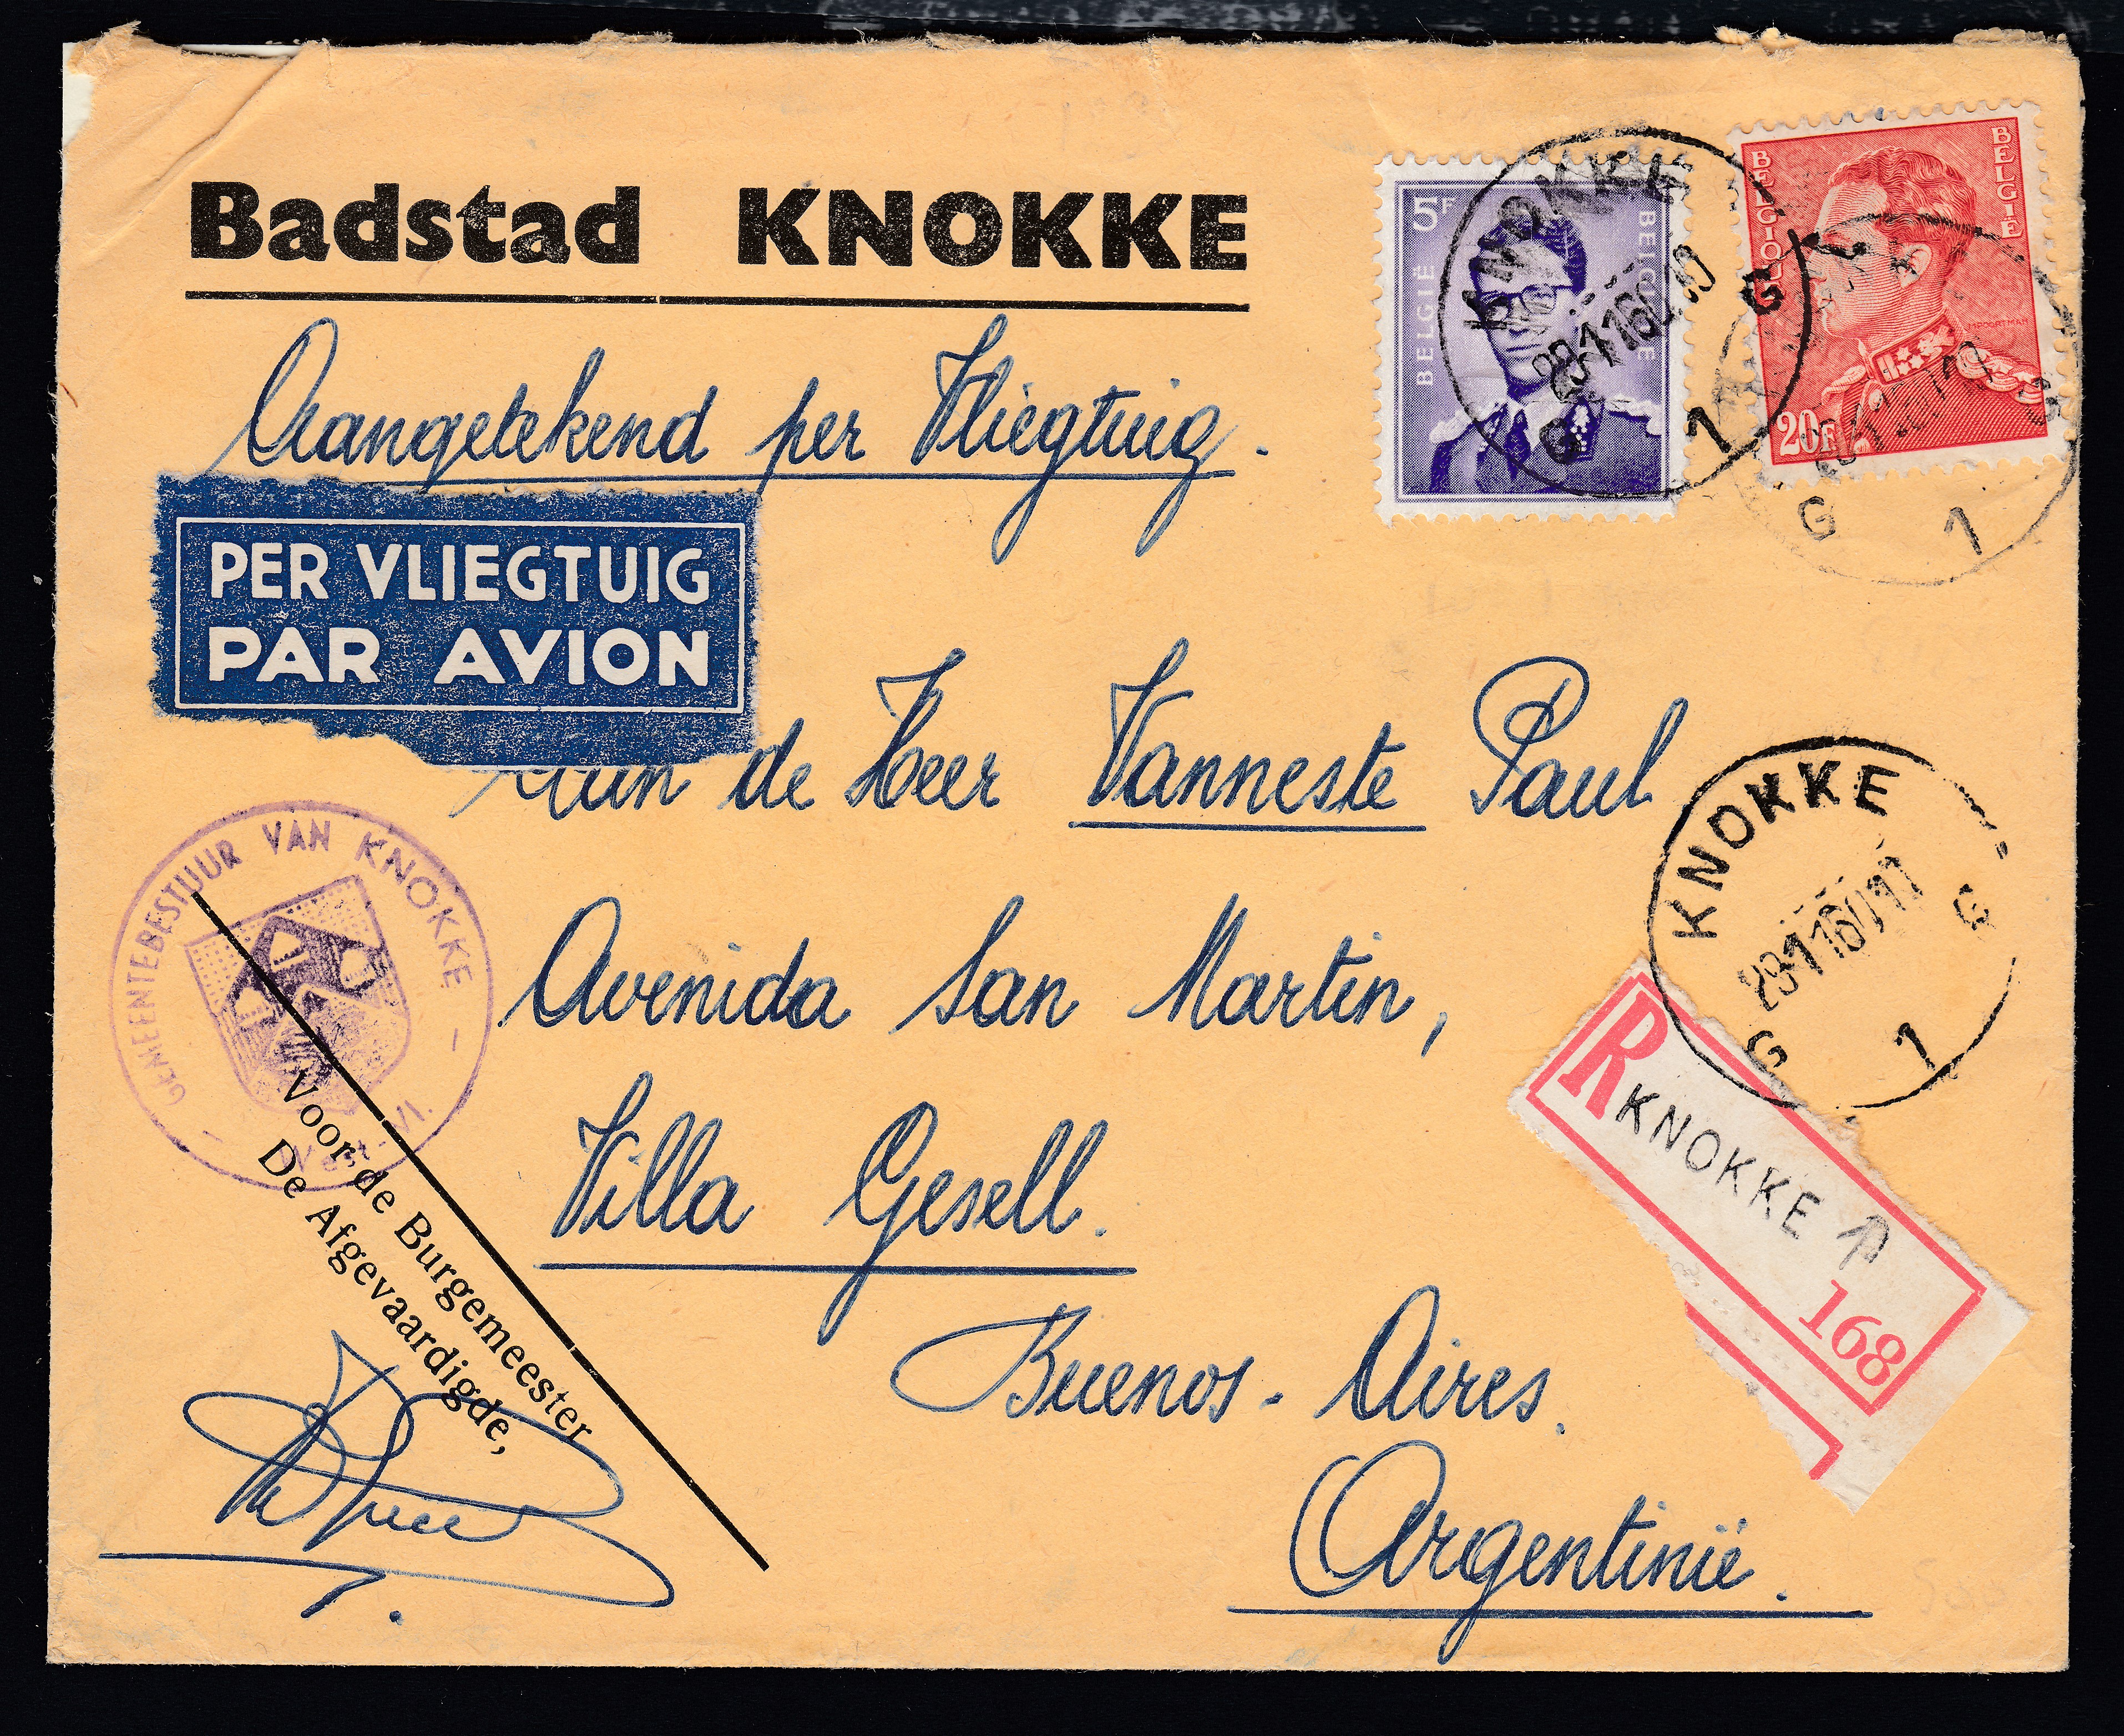 Badstad KNOKKE
Aangetekend per Vliegtuig.
PER VLIEGTUIG
PAR AVION
5F
BELGIË
BELGIQUE
BELGIQUE
BELGIË
20F
KNOKKE
G G
1
G 1
Aan de Heer Vanneste Paul
Avenida San Martin,
Villa Gesell.
Buenos-Aires.
Argentinië.
GEMEENTEBESTUUR VAN KNOKKE
Voor de Burgemeester
De Afgevaardigde,
KNOKKE
G G
1
R
KNOKKE 1
168